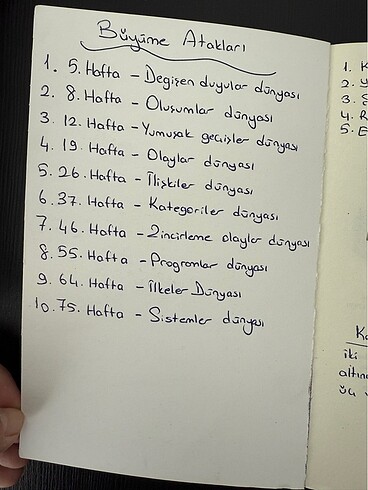 Büyüme Atakları
1. 5. Hafta - Değişen duyular dünyası
2. 8. Hafta - Oluşumlar dünyası
3. 12. Hafta - Yumuşak geçişler dünyası
4. 19. Hafta - Olaylar dünyası
5. 26. Hafta - İlişkiler dünyası
6. 37. Hafta - Kategoriler dünyası
7. 46. Hafta - Zincirleme olaylar dünyası
8. 55. Hafta - Programlar dünyası
9. 64. Hafta - İlkeler Dünyası
10. 75. Hafta - Sistemler dünyası
1.
2.
3.
4.
5.
iki